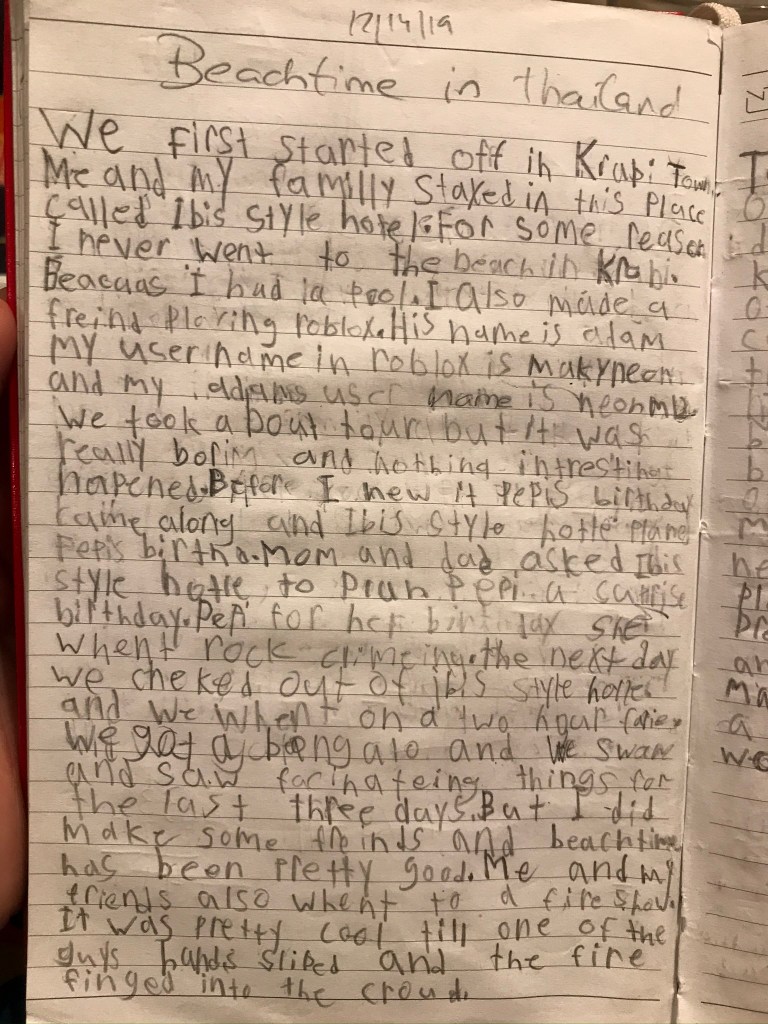 12/14/19
Beachtime in thailand
We first started off in Krabi Town.
Me and my familly stayed in this place
called Ibis style hotel. For some reason
I never went to the beach in Krabi.
Beacaas I had a pool. I also made a
freind playing roblox. His name is adam
My user name in roblox is makyneon
and my addams user name is
We took a bout tour but it was
really borim and nothing intresting
hapened. Before I new it pepis birthday
came along and Ibis style hotle planed
pepis birthda. Mom and dad asked Ibis
style hotle to plan pepi a suprise
birthday. Pepi for her birthday she
whent rock climeing. the next day
we cheked out of ibis style hotles
and we whent on a two hour
We got a bengalo and we swam
and saw facinateing things for
the last three days. But I did
make some freinds and beachtime
has been pretty good. Me and my
friends also whent to a fire show.
It was pretty cool till one of the
guys hands sliped and the fire
finged into the croud.